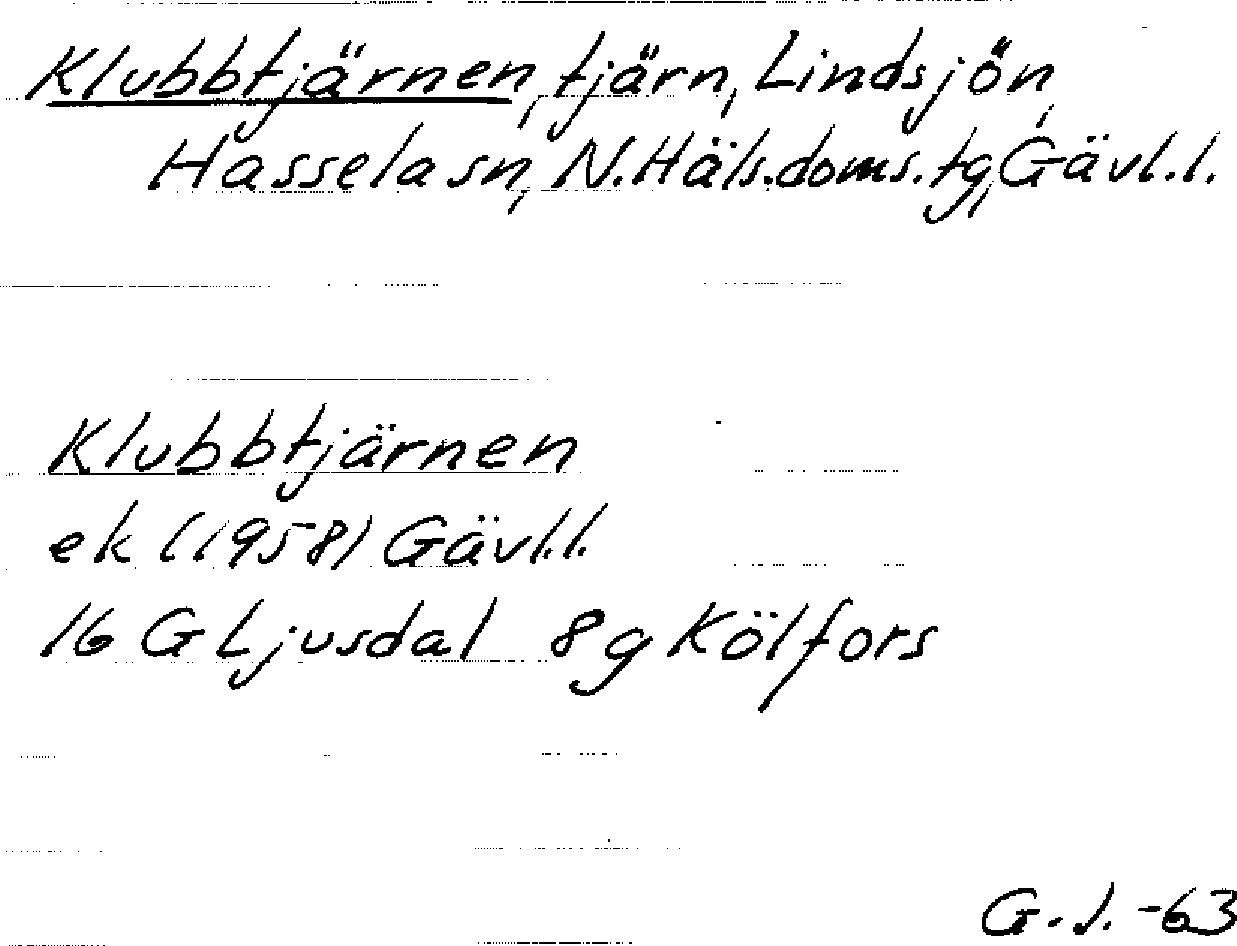 Klubbtjärnen, tjärn, Lindsjön,
Hassela sn, N.Häls.doms.tg, Gävl.l.
Klubbtjärnen
ek (1958) Gävl.l.
16 G Ljusdal 8g Kölfors
G.J. -63